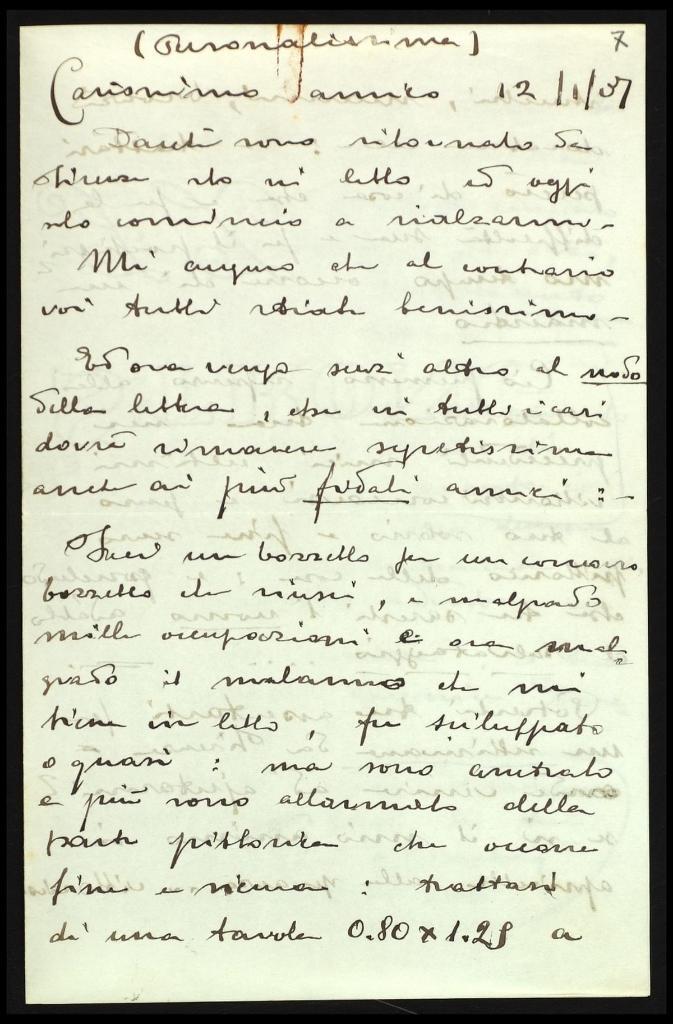 (Personalissima)
7
Carissimo amico 12/1/37
Dacché sono ritornato da
Firenze sto in letto ed oggi
solo comincio a rialzarmi -
Mi auguro che al contrario
voi tutti stiate benissimo -
Ed ora vengo senz altro al nodo
della lettera, che in tutti i casi
dovrà rimanere segretissima
anche ai più fidati amici : -
Feci un bozzetto per un concorso
bozzetto che riuscì, e malgrado
mille occupazioni e ora mal=
grado il malanno che mi
tiene in letto, fu sviluppato
o quasi : ma sono
e più sono allarmato della
parte pittorica che occorre
fine e sicura : trattasi
di una tavola 0.80 x 1.25 a